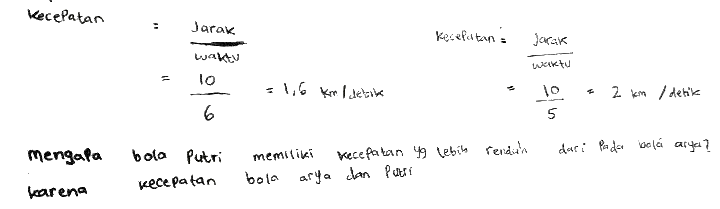 kecepatan = Jarak
waktu
= 10
6
= 1,6 km/detik
kecepatan = Jarak
waktu
= 10
5
= 2 km/detik
mengapa bola Putri memiliki kecepatan yg lebih rendah dari pada bola arya?
karena kecepatan bola arya dan Putri